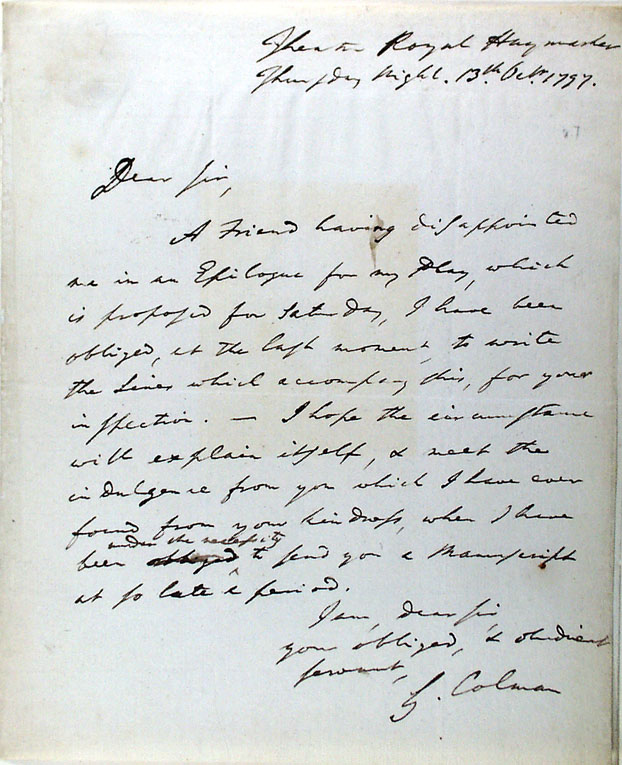 Theatre Royal Haymarket
Thursday Night. 13th. Octr. 1797.
Dear Sir,
A Friend having disappointed
me in an Epilogue for my Play, which
is proposed for Saturday, I have been
obliged, at the last moment, to write
the Lines which accompany this, for your
inspection. — I hope the circumstance
will explain itself, & meet the
indulgence from you which I have ever
found from your kindness, when I have
under the necessity
been obliged to send you a Manuscript
at so late a period.
I am, dear Sir,
your obliged, & obedient
servant,
G. Colman